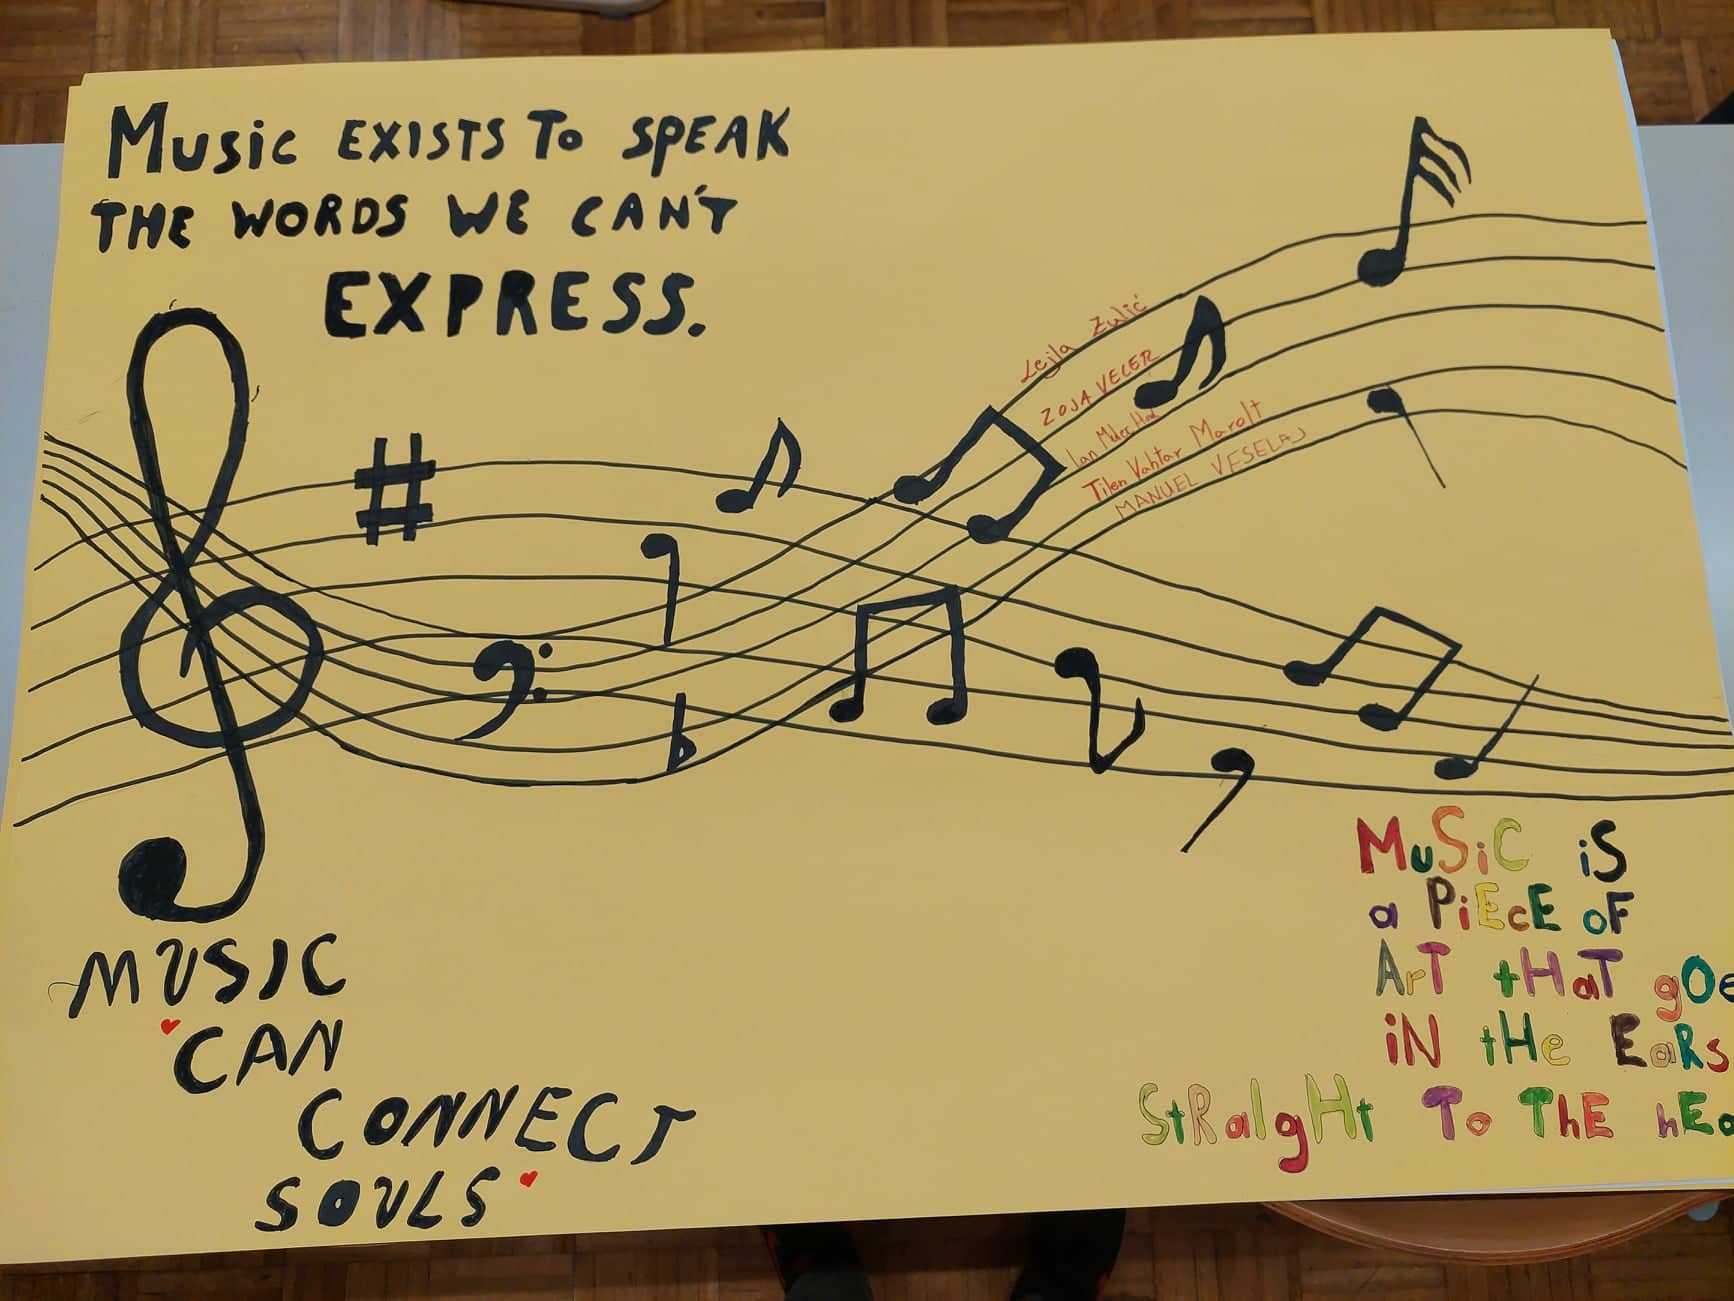 MUSIC EXISTS TO SPEAK
THE WORDS WE CAN'T
EXPRESS.
Lejla Zulić
ZOJA VECER
Ian
Tilen Vahtar Marolt
MANUEL VESELAJ
MUSIC
CAN
CONNECT
SOULS
MuSiC iS
a PiEcE oF
ArT tHaT gOe
iN tHe EaRs
StRaIgHt To ThE hEa